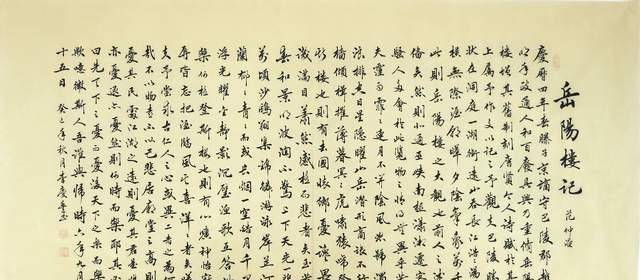 岳陽樓記
范仲淹
慶曆四年春滕子京謫守巴陵郡
明年政通人和百廢具興乃重修岳陽
樓增其舊制刻唐賢今人詩賦於
上屬予作文以記之予觀夫巴陵勝
狀在洞庭一湖銜遠山吞長江浩浩
橫無際涯朝暉夕陰氣象萬
此則岳陽樓之大觀也前人之述
備矣然則北通巫峽南極瀟湘遷
騷人多會於此覽物之情得無異乎若
夫霪雨霏霏連月不開陰風怒號濁
浪排空日星隱耀山岳潛形商旅不
檣傾楫摧薄暮冥冥虎嘯猿啼
斯樓也則有去國懷鄉憂讒畏
譏滿目蕭然感極而悲者矣至
春和景明波瀾不驚上下天光
萬頃沙鷗翔集錦鱗游泳岸芷汀
蘭郁郁青青而或長煙一空皓月千里
浮光躍金靜影沉璧漁歌互答
樂何極登斯樓也則有心曠神怡
辱皆忘把酒臨風其喜洋洋者矣
夫予嘗求古仁人之心或異二者之為何
哉不以物喜不以己悲居廟堂之高則
憂其民處江湖之遠則憂其君是
亦憂退亦憂然則何時而樂耶其
曰先天下之憂而憂後天下之樂而樂
歟噫微斯人吾誰與歸時六年九月
十五日 癸巳年秋月李慶